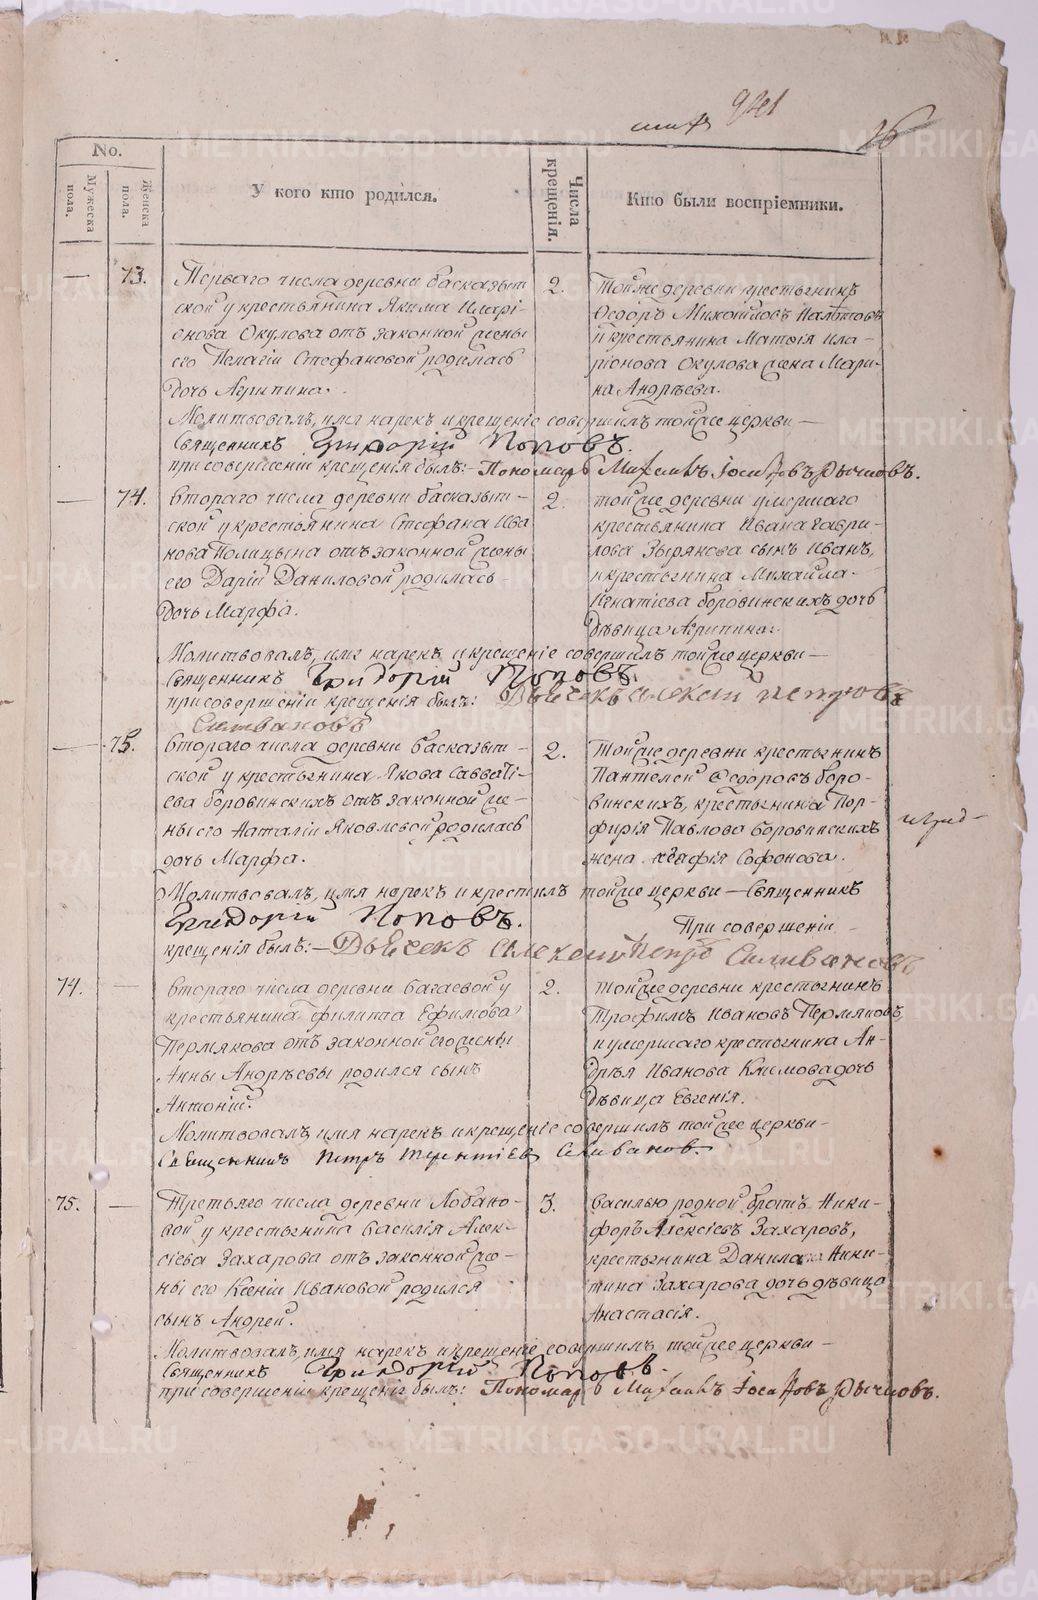 26
No.
Мужеска пола.
Женска пола.
У кого кто родился.
Числа крещенія.
Кто были воспріемники.
73.
Перваго числа деревни Басказыт
ской у крестьянина Якима Иларі-
онова Окулова отъ законной жены
его Пелагіи Стефановой родилась
дочь Агрипина.
2.
Той же деревни крестьянинъ
Ѳедоръ Михайловъ
и крестьянина Матѳія Ила-
ріонова Окулова жена Мари-
на Андрѣева.
Молитвовалъ, имя нарекъ и крещеніе совершилъ той же церкви
Священникъ Григорій Поповъ.
при совершеніи крещенія былъ: Пономарь Михаилъ Іосифовъ
74.
Втораго числа деревни Басказыт-
ской у крестьянина Стефана Ива
нова отъ законной жены
его Даріи Даниловой родилась
дочь Марфа.
2.
той же деревни умершаго
крестьянина Ивана Гаври-
лова Зырянова сынъ Иванъ,
и крестьянина Михайла
Игнатіева Боровинскихъ дочь
дѣвица Агрипина.
Молитвовалъ, имя нарекъ и крещеніе совершилъ той же церкви
Священникъ Григорій Поповъ.
при совершеніи крещенія былъ: Дьячекъ Алексей Петровъ
Селивановъ
75.
Втораго числа деревни Басказыт-
ской у крестьянина Якова Савваті-
ева Боровинскихъ отъ законной же-
ны его Наталіи Яковлевой родилась
дочь Марфа.
2.
Той же деревни крестьянинъ
Пантелей Ѳедоровъ Боро-
винскихъ, крестьянина Пор-
фирія Павлова Боровинскихъ
жена Агафія Софонова.
Молитвовалъ, имя нарекъ и крестилъ той же церкви Священникъ
Григорій Поповъ. При совершеніи
крещенія былъ: Дьячекъ Алексей Петровъ Селивановъ
74.
Втораго числа деревни Багаевой у
крестьянина Филиппа Ефимова
Пермякова отъ законной его жены
Анны Андрѣевы родился сынъ
Антоній.
2.
той же деревни крестьянинъ
Трофимъ Ивановъ Пермяковъ,
и умершаго крестьянина Ан-
дрѣя Иванова Климова дочь
дѣвица Евгенія.
Молитвовалъ, имя нарекъ и крещеніе совершилъ той же церкви
Священникъ Петръ Терентіев Селивановъ.
75.
Третьяго числа деревни Лобано-
вой у крестьянина Василія Алек-
сіева Захарова отъ законной же-
ны его Ксеніи Ивановой родился
сынъ Андрей.
3.
Василью родной братъ Ники-
форъ Алексіевъ Захаровъ,
крестьянина Данила Ники-
тина Захарова дочь дѣвица
Анастасія.
Молитвовалъ, имя нарекъ и крещеніе совершилъ той же церкви
Священникъ Григорій Поповъ.
при совершеніи крещенія былъ: Пономарь Михаилъ Іосифовъ
METRIKI.GASO-URAL.RU